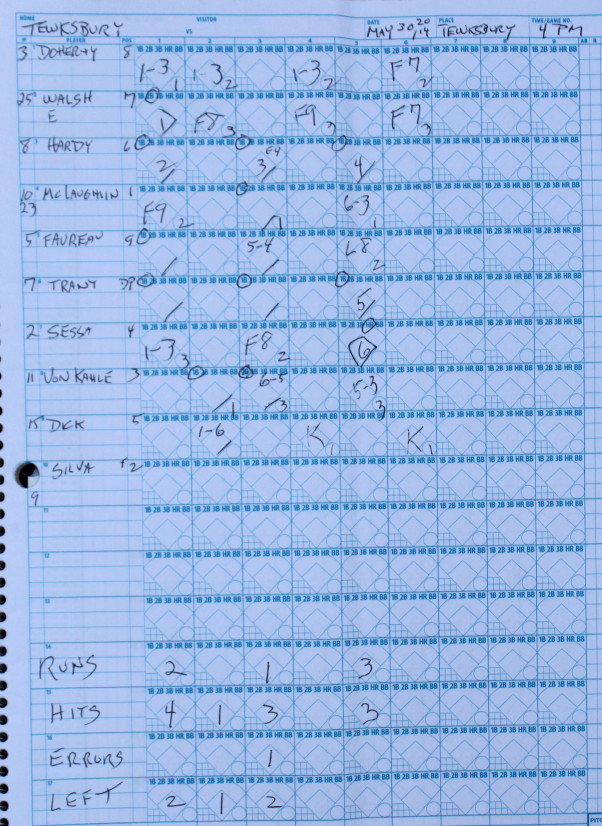 HOME VISITOR DATE PLACE TIME/GAME NO.
TEWKSBURY VS MAY 30, 2014 TEWKSBURY 4 PM
# PLAYER POS 1 2 3 4 5 6 7 8 9 AB R
3 DOHERTY 8 1-3 1 1-3 2 1-3 2 F7 2
25 WALSH 7 1 F8 3 F9 3 F7 3
E
8 HARDY 6 2 3 E4 4
10 McLAUGHLIN 1 F9 2 1 6-3 1
23
5 FAVREAU 9 5-4 L8 2
7 TRANT DP 5
2 SESSA 4 1-3 3 F8 2 6
11 VON KAHLE 3 1 6-5 3 5-3 3
15 DICK 5 1-6 K 1 K 1
SILVA F2
9
11
12
13
14
RUNS 2 1 3
15
HITS 4 1 3 3
16
ERRORS 1
17
LEFT 2 1 2